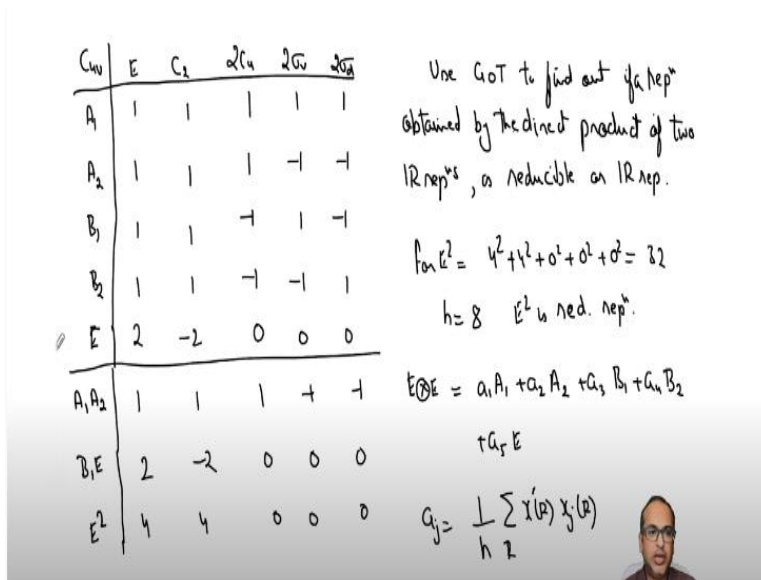 C₄ᵥ E C₂ 2C₄ 2σᵥ 2σd
A₁ 1 1 1 1 1
A₂ 1 1 1 -1 -1
B₁ 1 1 -1 1 -1
B₂ 1 1 -1 -1 1
E 2 -2 0 0 0
A₁A₂ 1 1 1 -1 -1
B₁E 2 -2 0 0 0
E² 4 4 0 0 0
Use GOT to find out if a repⁿ
obtained by the direct product of two
IR repⁿs, is reducible or IR rep.
for E² = 4²+4²+0²+0²+0² = 32
h = 8 E² is red. repⁿ.
E⊗E = a₁A₁ + a₂A₂ + a₃B₁ + a₄B₂
+ a₅E
aⱼ = 1/h Σ χ'(R) χⱼ(R)
R